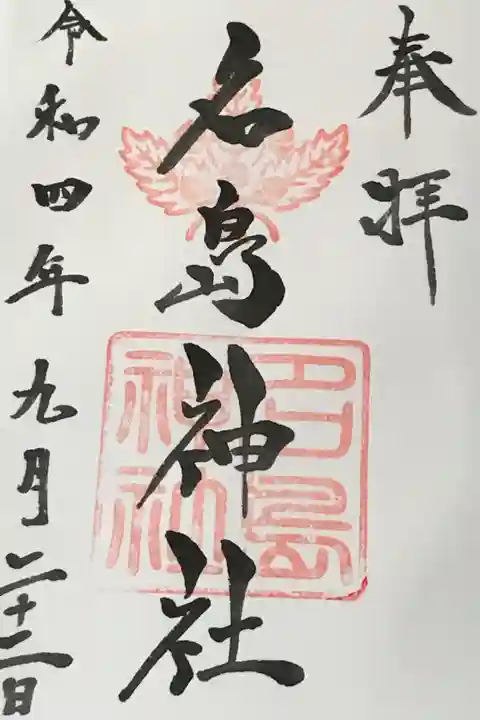 奉拝
名島神社
名島
神社
令和四年九月二十二日